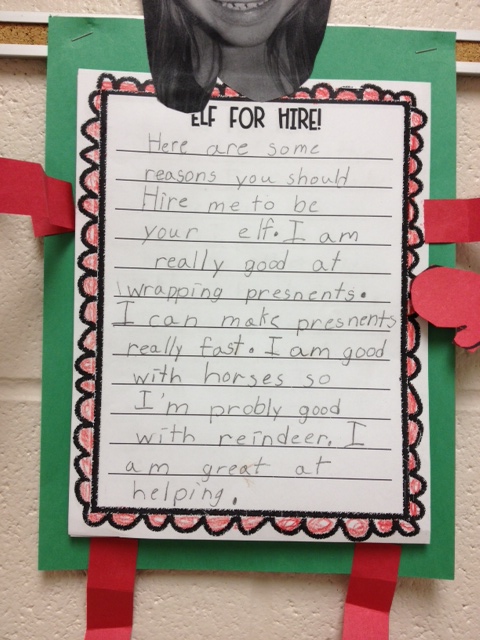 ELF FOR HIRE!
Here are some
reasons you should
Hire me to be
your elf. I am
really good at
wrapping presnents.
I can make presnents
really fast. I am good
with horses so
I'm probly good
with reindeer. I
am great at
helping.